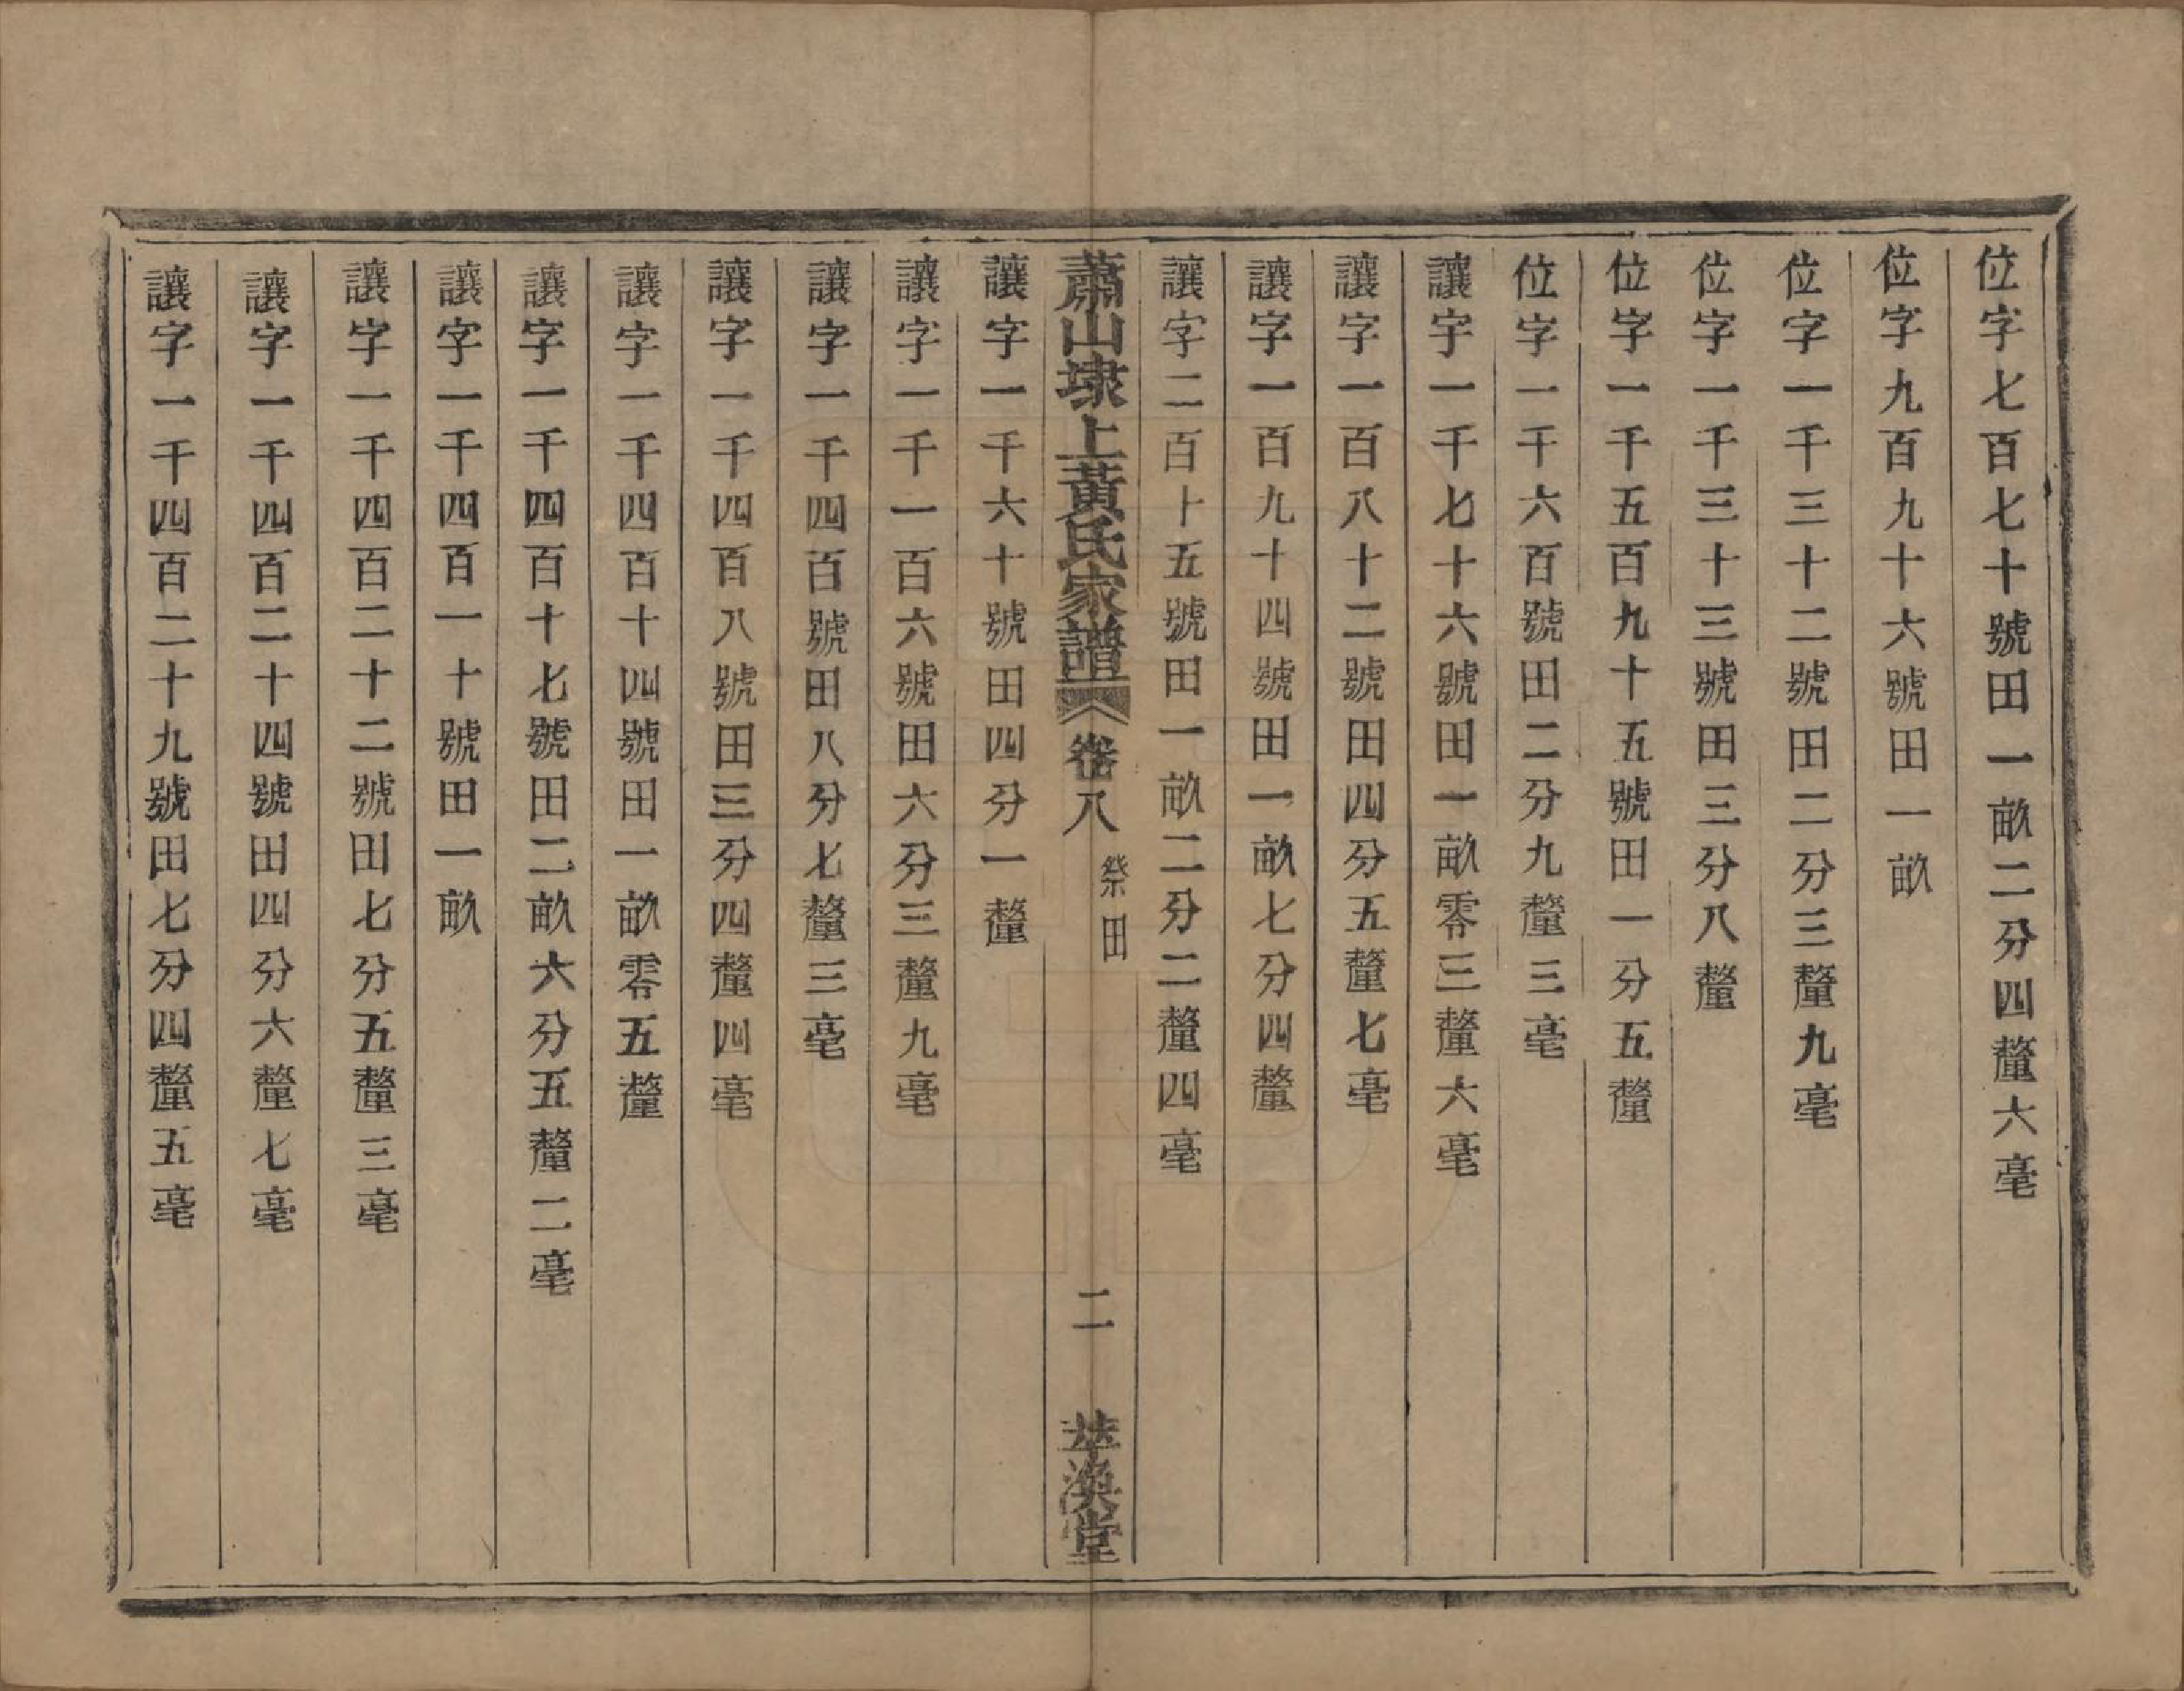 位字七百七十號田一畝二分四釐六毫
位字九百九十六號田一畝
位字一千三十二號田二分三釐九毫
位字一千三十三號田三分八釐
位字一千五百九十五號田一分五釐
位字一千六百號田二分九釐三毫
讓字一千七十六號田一畝零三釐六毫
讓字一百八十二號田四分五釐七毫
讓字一百九十四號田一畝七分四釐
讓字二百十五號田一畝二分二釐四毫
蕭山埭上黃氏家譜 卷八 祭田 二 萃渙堂
讓字一千六十號田四分一釐
讓字一千一百六號田六分三釐九毫
讓字一千四百號田八分七釐三毫
讓字一千四百八號田三分四釐四毫
讓字一千四百十四號田一畝零五釐
讓字一千四百十七號田二畝六分五釐二毫
讓字一千四百一十號田一畝
讓字一千四百二十二號田七分五釐三毫
讓字一千四百二十四號田四分六釐七毫
讓字一千四百二十九號田七分四釐五毫